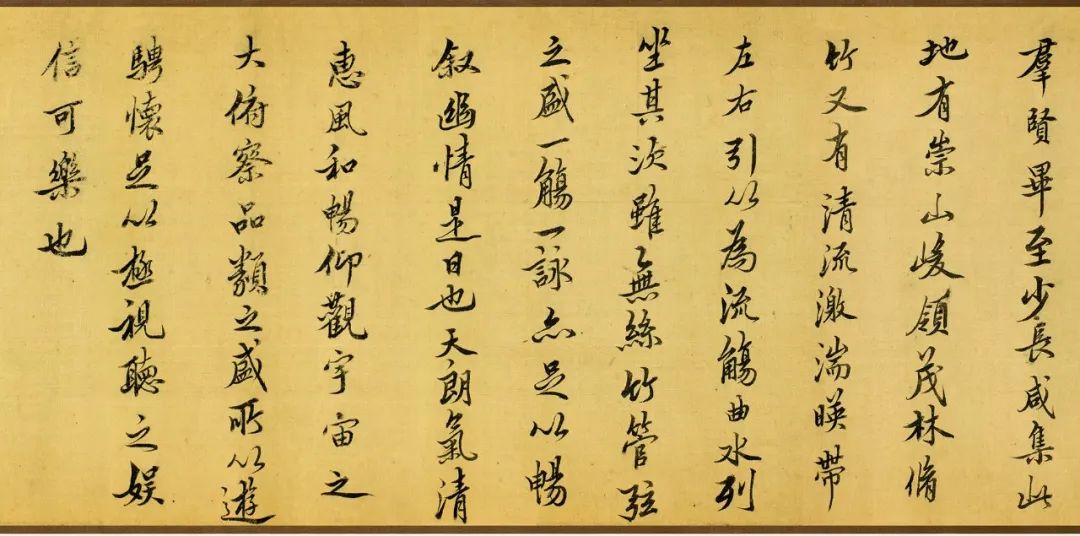 羣賢畢至少長咸集此
地有崇山峻領茂林脩
竹又有清流激湍暎帶
左右引以為流觴曲水列
坐其次雖無絲竹管弦
之盛一觴一詠亦足以暢
叙幽情是日也天朗氣清
惠風和暢仰觀宇宙之
大俯察品類之盛所以遊
騁懷足以極視聽之娱
信可樂也